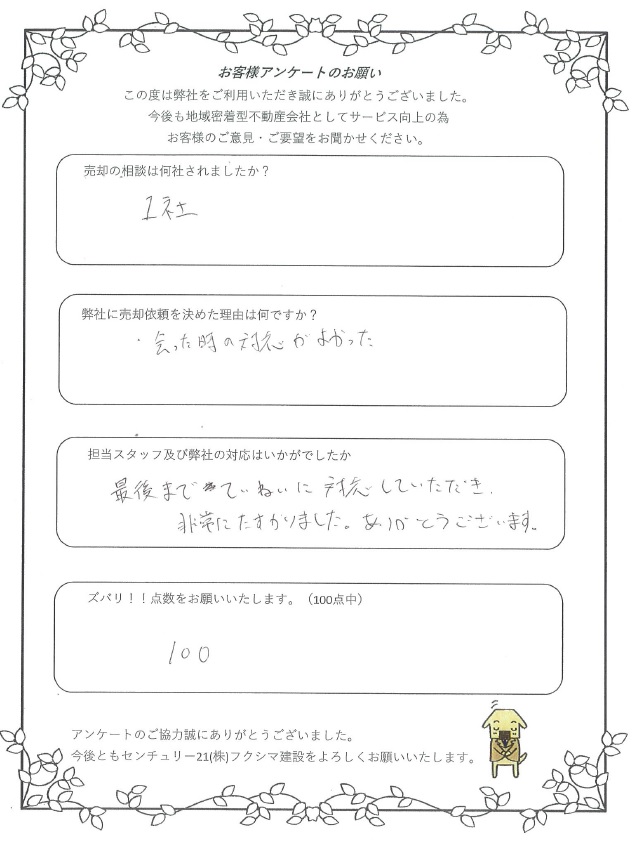 お客様アンケートのお願い
この度は弊社をご利用いただき誠にありがとうございました。
今後も地域密着型不動産会社としてサービス向上の為
お客様のご意見・ご要望をお聞かせください。
売却の相談は何社されましたか？
1社
弊社に売却依頼を決めた理由は何ですか？
・会った時の対応がよかった
担当スタッフ及び弊社の対応はいかがでしたか
最後までていねいに対応していただき、
非常にたすかりました。ありがとうございます。
ズバリ！！点数をお願いいたします。（100点中）
100
アンケートのご協力誠にありがとうございました。
今後ともセンチュリー21(株)フクシマ建設をよろしくお願いいたします。